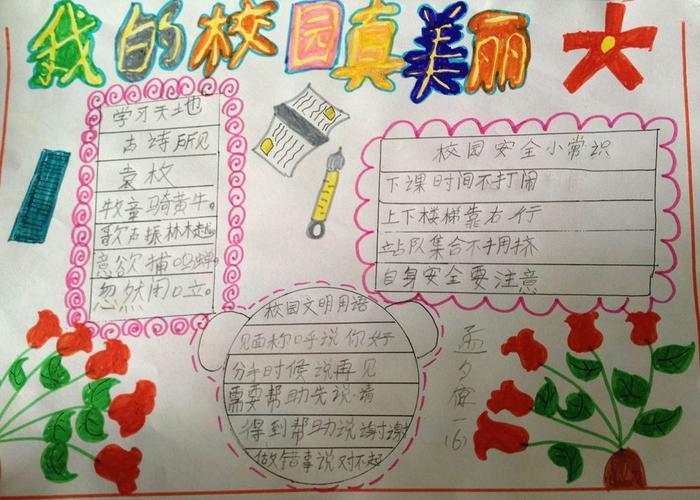 我的校园真美丽
学习天地
古诗所见
袁枚
牧童骑黄牛。
歌声振林樾。
意欲捕鸣蝉。
忽然用口立。
校园安全小常识
下课时间不打闹
上下楼梯靠右行
站队集合不拥挤
自身安全要注意
校园文明用语
见面称呼说你好
分手时候说再见
需要帮助先说请
得到帮助说谢谢
做错事说对不起
孟夕
一(6)